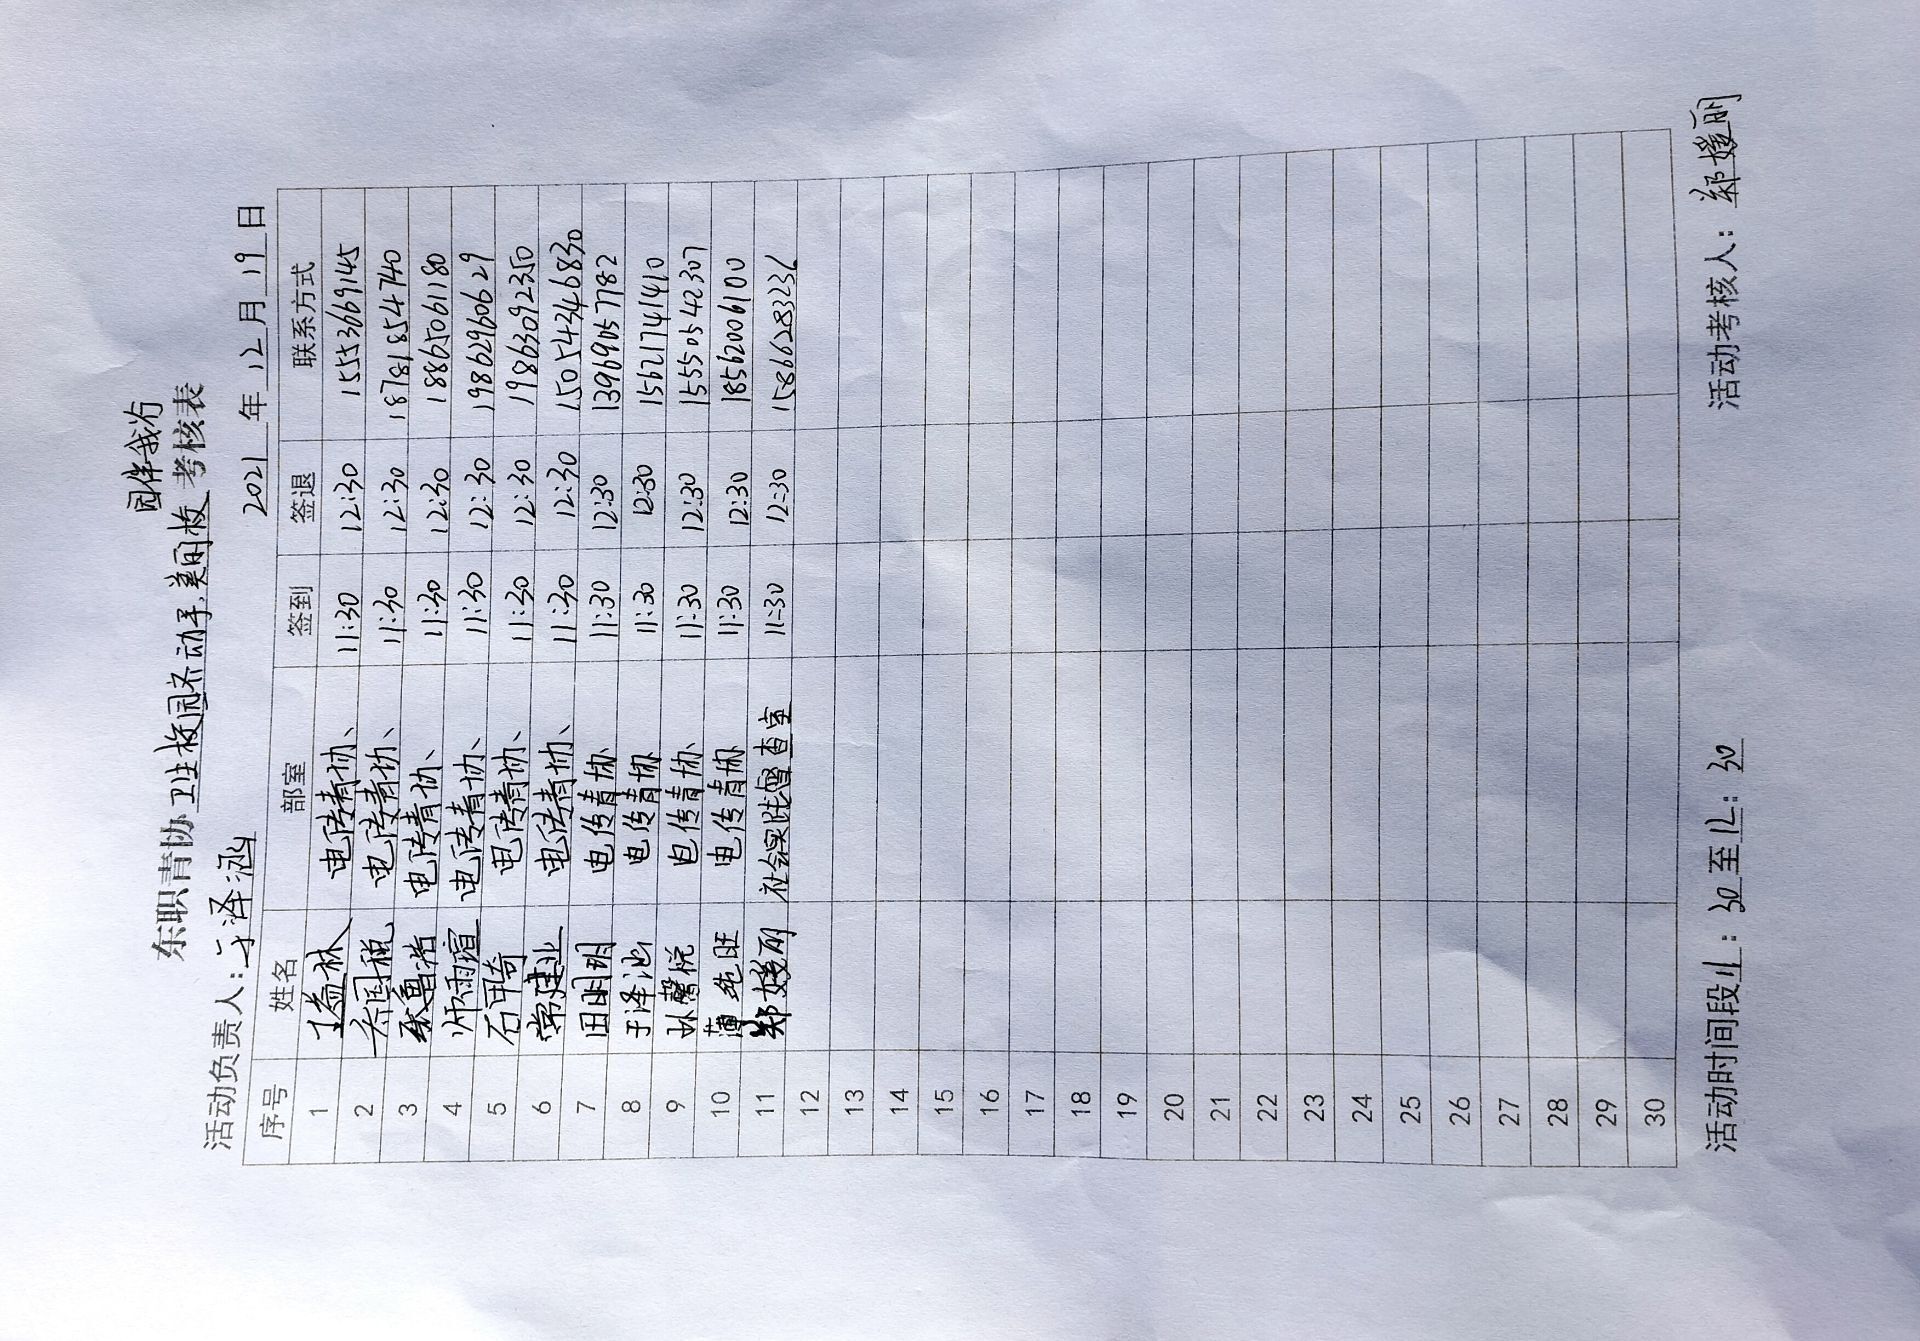 园伴我行
东职青协 卫生校园齐动手,美间校 考核表
活动负责人: 于泽涵 2021 年 12 月 19 日
序号 姓名 部室 签到 签退 联系方式
1 王益林 电传青协、 11:30 12:30 15553669145
2 乔国税 电传青协、 11:30 12:30 18781854740
3 张鲁浩 电传青协、 11:30 12:30 18865061180
4 师雨瑄 电传青协、 11:30 12:30 19862960629
5 石甲奇 电传青协、 11:30 12:30 19863092350
6 常建业 电传青协、 11:30 12:30 15054346830
7 田明玥 电传青协 11:30 12:30 13969057782
8 于泽池 电传青协 11:30 12:30 15621741410
9 馨悦 电传青协 11:30 12:30 15550542307
10 薄纯旺 电传青协 11:30 12:30 18562006100
11 郑媛丽 社会实践督查室 11:30 12:30 15866283236
12
13
14
15
16
17
18
19
20
21
22
23
24
25
26
27
28
29
30
活动时间段 11:30 至 12:30 活动考核人: 郑媛丽